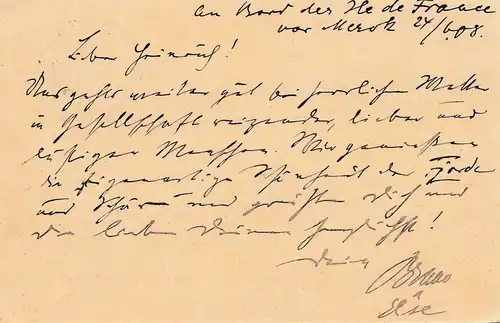 An Bord der Ile de France
vor Merok 24/6.08.
Lieber Heinrich!
Uns geht's weiter gut bei herrlichem Wetter
in Gesellschaft reizender, lieber und
lustiger Menschen. Wir genießen
die eigenartige Schönheit der Fjorde
und grüßen Dich und
die lieben Deinen herzlichst!
Dein Bruno
Else